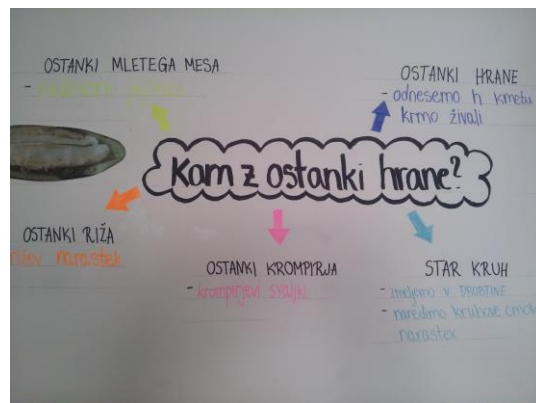 OSTANKI MLETEGA MESA
-
OSTANKI HRANE
- odnesemo h kmetu
krmo živali
Kam z ostanki hrane?
OSTANKI RIŽA
narastek
OSTANKI KROMPIRJA
- krompirjevi svaljki
STAR KRUH
- zmeljemo v DROBTINE
- naredimo kruhove cmoke
narastek